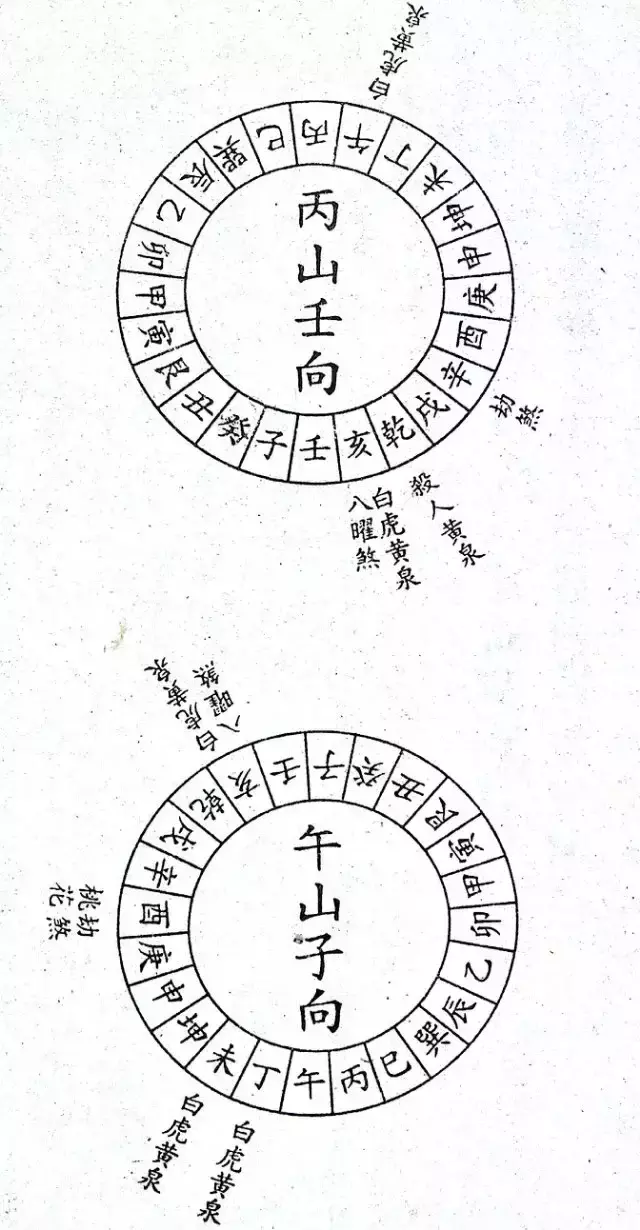 白虎黄泉
丙午丁未坤申庚酉辛戌乾亥壬子癸丑艮寅甲卯乙辰巽巳
丙山壬向
劫煞
殺人黄泉
白虎黄泉
八曜煞
白虎黄泉
八曜煞
子癸丑艮寅甲卯乙辰巽巳丙午丁未坤申庚酉辛戌乾亥壬
午山子向
劫煞
桃花
白虎黄泉
白虎黄泉